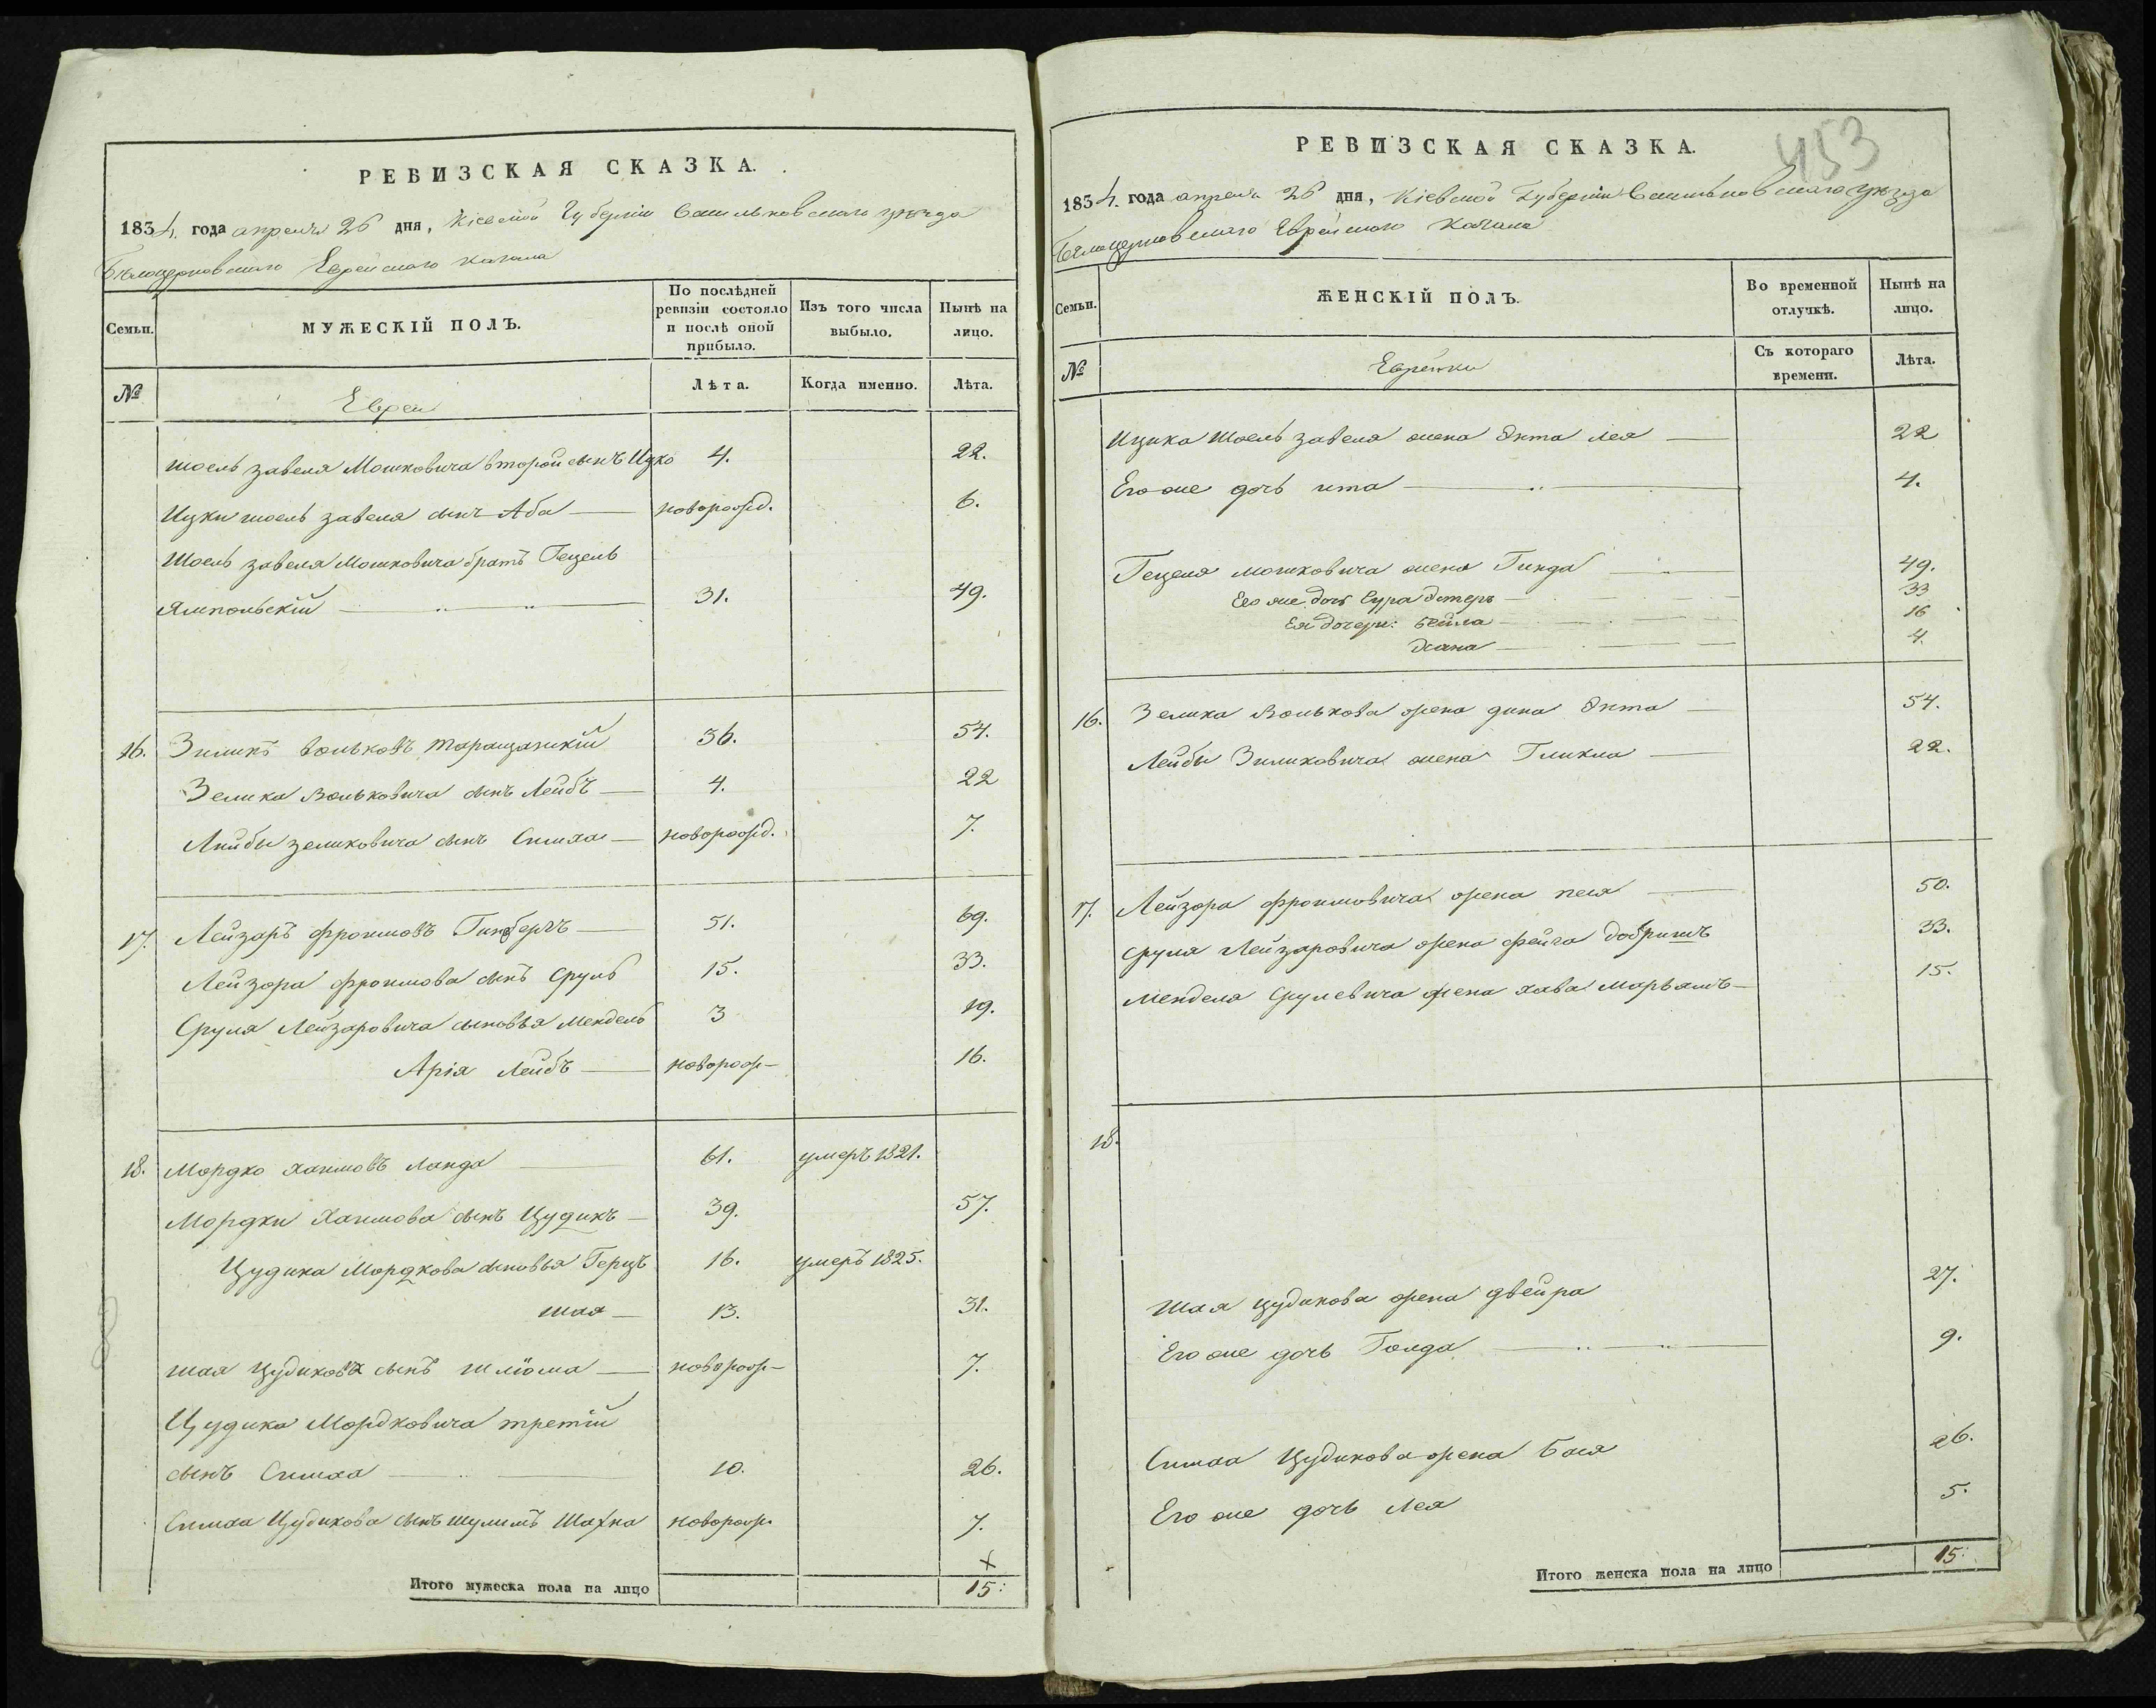 РЕВИЗСКАЯ СКАЗКА.
1834. года апреля 26 дня, Кіевской Губерніи Васильковскаго уезда
Бѣлоцерковскаго Еврейскаго Кагала
Семьи.
МУЖЕСКІЙ ПОЛЪ.
По послѣдней ревизіи состояло и послѣ оной прибыло.
Изъ того числа выбыло.
Нынѣ на лицо.
№
Евреи
Лѣта.
Когда именно.
Лѣта.
Шоель завеля Мошковича второй сынъ Ицко 4. 22.
Ицки шоель завеля сынъ Аба новорожд. 6.
Шоель завеля Мошковича братъ Гецель
Ямпольскій 31. 49.
16. Зиликъ Вольковъ Таращанскій 36. 54.
Зелика Вольковича сынъ Лейбъ 4. 22
Лейбы зеликовича сынъ Симха новорожд. 7.
17. Лейзоръ Фроимовъ Гинзбергъ 51. 69.
Лейзора Фроимова сынъ Сруль 15. 33.
Сруля Лейзаровича сыновья Мендель 3 19.
Арія Лейбъ новорож- 16.
18. Мордко Хаимовъ Ланда 61. умеръ 1821.
Мордки Хаимова сынъ Цудикъ 39. 57.
Цудика Мордкова сыновья Герцъ 16. умеръ 1825.
шая 13. 31.
шая Цудикова сынъ шліома новорож- 7.
Цудика Мордковича третій
сынъ Симха 10. 26.
Симха Цудикова сынъ шулимъ Шахна новорож. 7.
Итого мужеска пола на лицо 15:
453
РЕВИЗСКАЯ СКАЗКА.
1834. года апреля 26 дня, Кіевской Губерніи Васильковскаго уезда
Белоцерковскаго Еврейскаго Кагала
Семьи.
ЖЕНСКІЙ ПОЛЪ.
Во временной отлучкѣ.
Нынѣ на лицо.
№
Еврейки
Съ котораго времени.
Лѣта.
Ицика Шоель завеля жена Энта лея 22
Его же дочь ита 4.
Гецеля мошковича жена Гинда 49.
Его же дочь Сура Эстеръ 33
Ея дочери: Бейла 16
Хана 4.
16. Зелика Волькова жена дина Энта 54.
Лейбы Зиликовича жена Гликла 22.
17. Лейзора Фроимовича жена песя 50.
Сруля Лейзаровича жена фейга добришъ 33.
Менделя Срулевича жена хава марьямъ 15.
18.
Шая цудикова жена двейра 27.
Его же дочь Голда 9.
Симха Цудикова жена Бася 26.
Его же дочь Лея 5.
Итого женска пола на лицо 15: